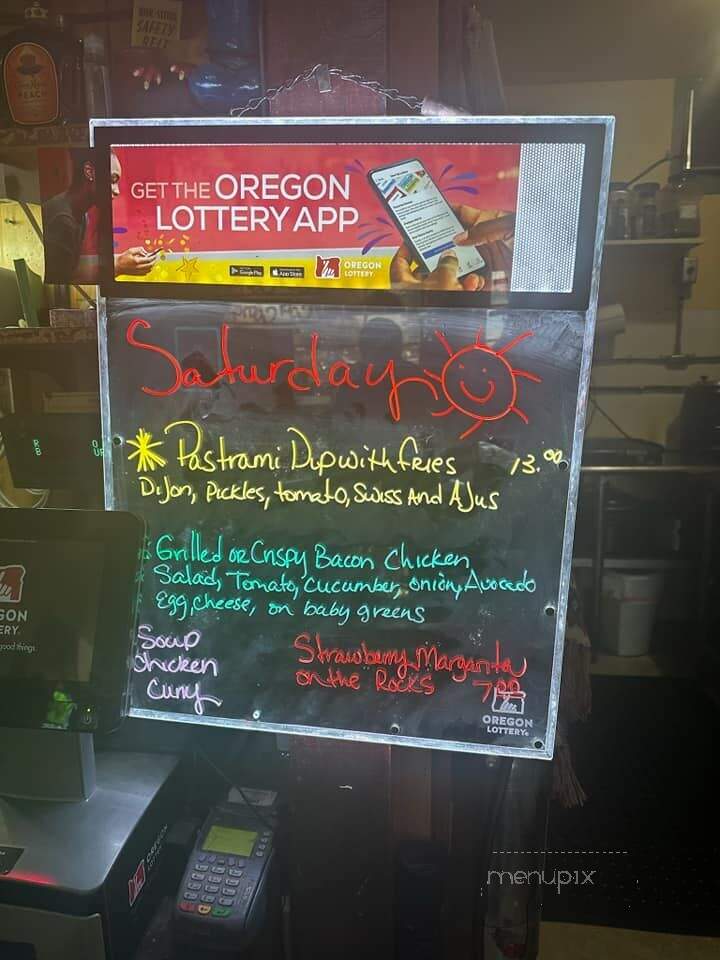 YOUR SAFETY BELT
PEACH
GET THE OREGON
LOTTERY APP
Google Play
App Store
OREGON
LOTTERY
Saturday
Pastrami Dip with fries 13.00
Dijon, Pickles, tomato, Swiss And AJus
Grilled or Crispy Bacon Chicken
Salad, Tomato, cucumber, onion, Avocado
Egg, cheese, on baby greens
Soup
Chicken
Curry
Strawberry Margarita
on the Rocks 7.00
OREGON
LOTTERY
GON
ERY.
good things
menupix